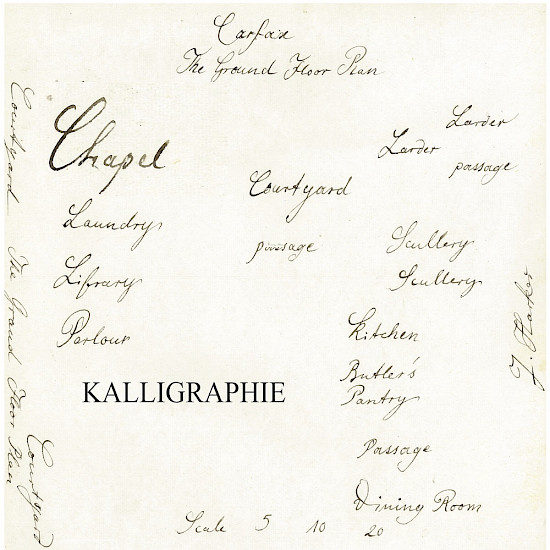 Carfax
The Ground Floor Plan
Courtyard The Grand Floor Plan
Courtyard
Chapel
Larder
Larder
passage
Courtyard
Laundry
passage
Scullery
Library
Scullery
Parlour
Kitchen
J. Harker
Butler's
Pantry
KALLIGRAPHIE
Passage
Dining Room
Scale 5 10 20